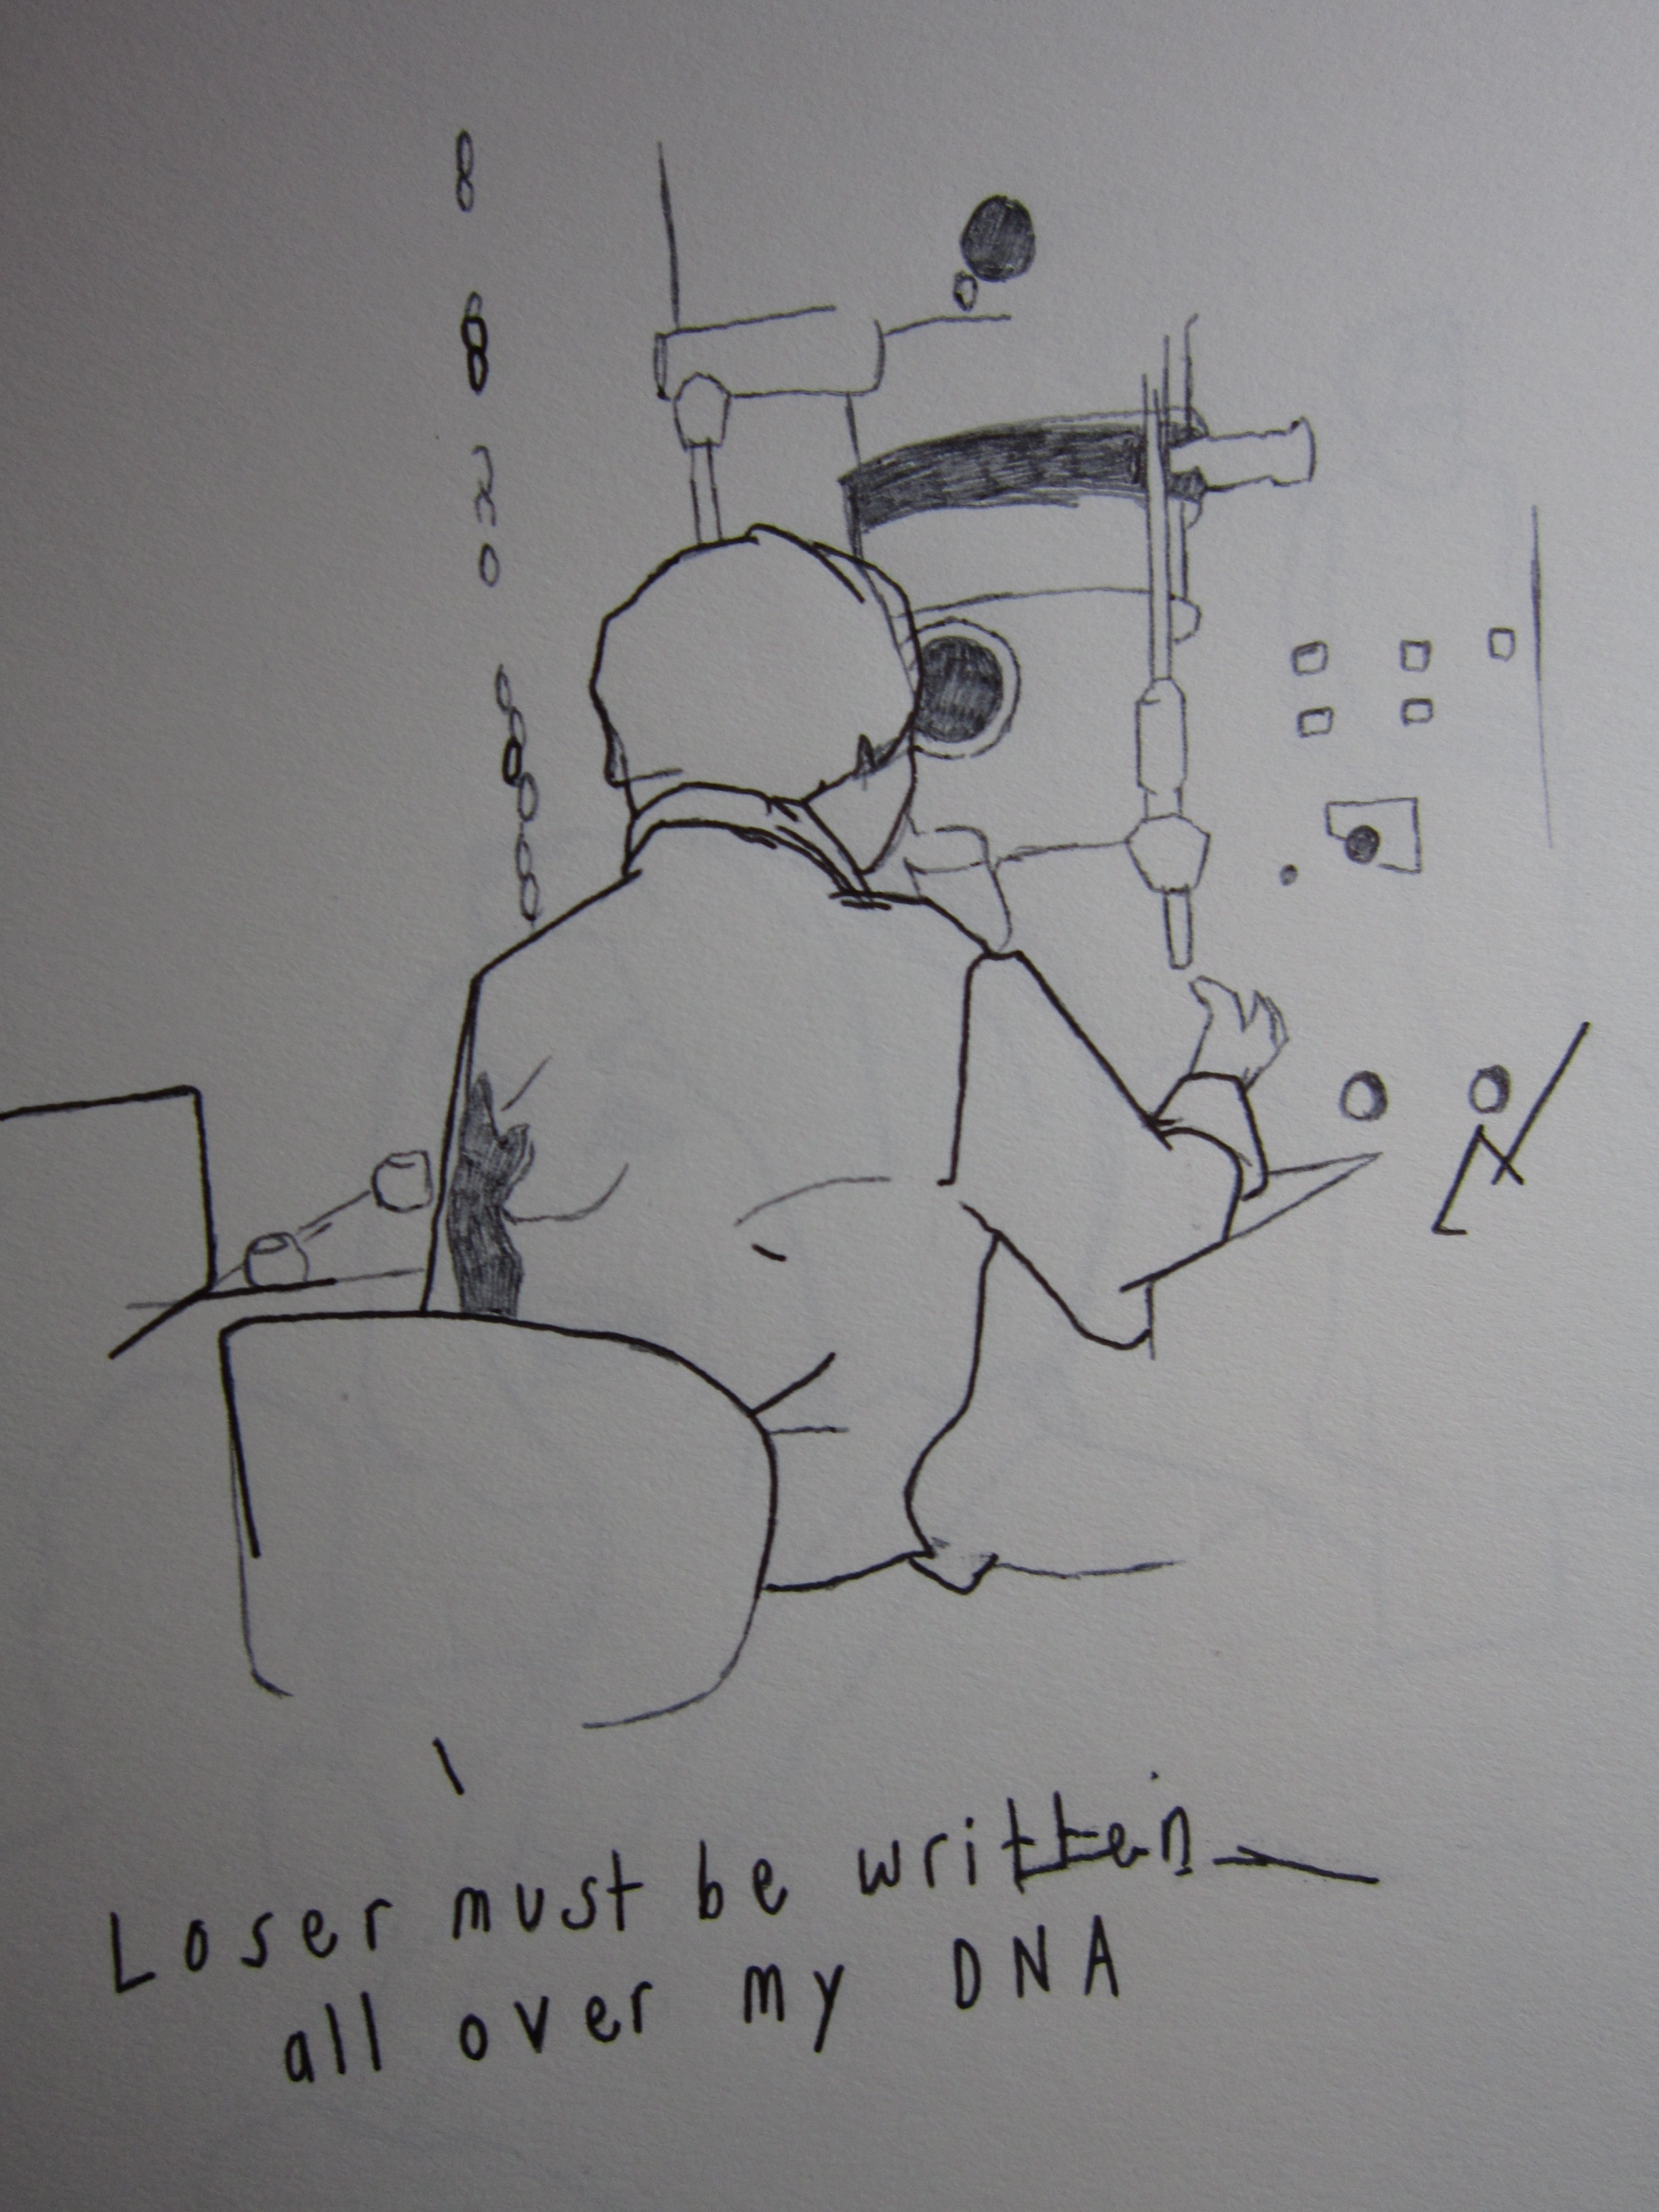 Loser must be written
all over my DNA